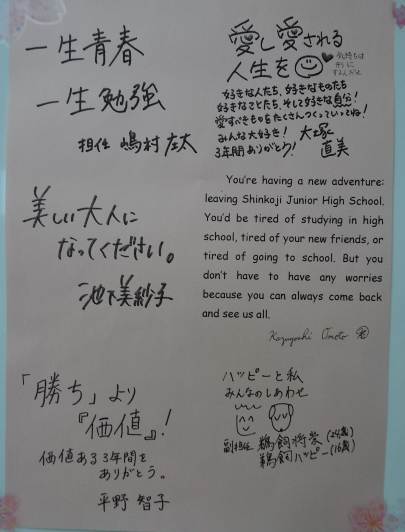 一生青春
一生勉強
担任 嶋村 庄太
愛し愛される
人生を
好きな人たち、好きなものたち
好きなことたち、そして好きな自分!
愛すべきものをたくさんつくっていってね!
みんな大好き! 大塚
3年間ありがとう! 直美
美しい大人に
なってください。
池下美紗子
You're having a new adventure:
leaving Shinkoji Junior High School.
You'd be tired of studying in high
school, tired of your new friends, or
tired of going to school. But you
don't have to have any worries
because you can always come back
and see us all.
Kazuyoshi Omoto
「勝ち」より
『価値』!
価値ある3年間を
ありがとう。
平野 智子
ハッピーと私
みんなのしあわせ
副担任 鵜飼将栄(24歳)
鵜飼ハッピー(16歳)